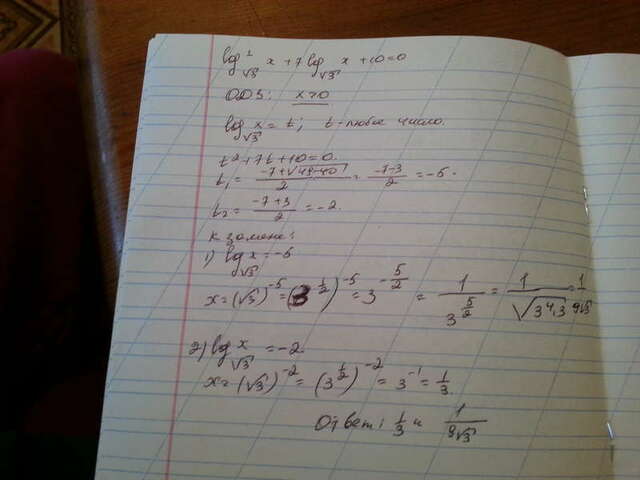 log²_√3 x + 7 log_√3 x + 10 = 0
ОДЗ: x > 0
log_√3 x = t; t - любое число.
t² + 7t + 10 = 0.
t₁ = (-7+√(49-40))/2 = (-7-3)/2 = -5.
t₂ = (-7+3)/2 = -2.
к замене:
1) log_√3 x = -5
x = (√3)^(-5) = (3^(1/2))^(-5) = 3^(-5/2) = 1/3^(5/2) = 1/√(3⁴·3) = 1/9√3
2) log_√3 x = -2.
x = (√3)^(-2) = (3^(1/2))^(-2) = 3^(-1) = 1/3.
Ответ: 1/3 и 1/9√3